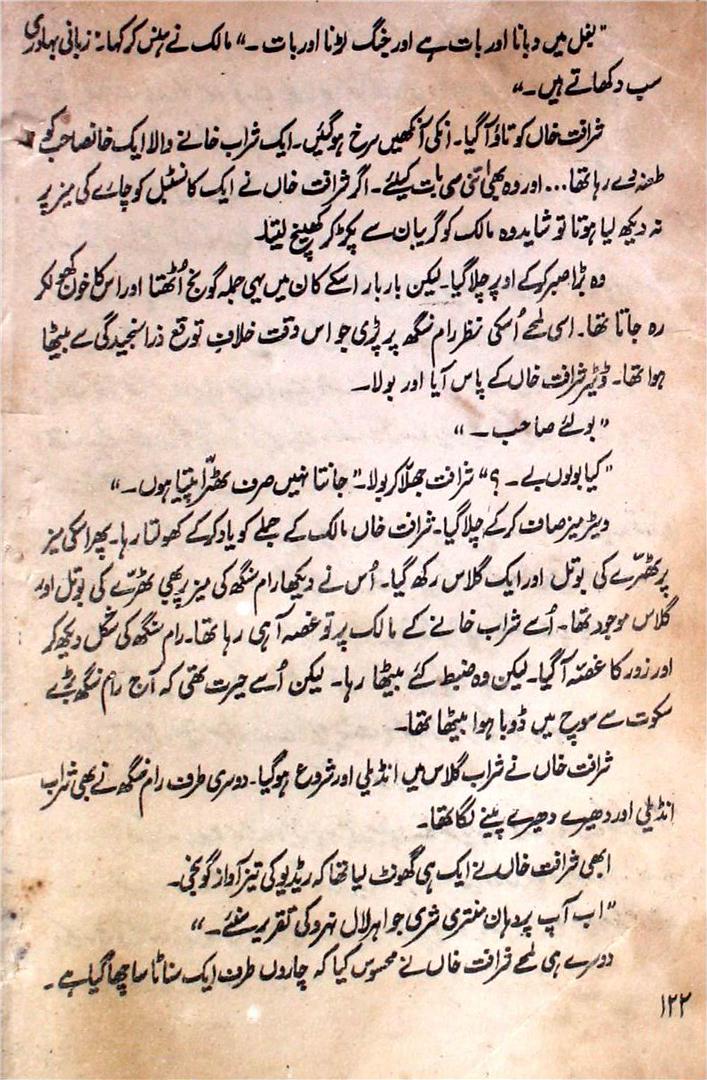 "بغل میں دبانا اور بات ہے اور جنگ لڑنا اور بات ـ" مالک نے ہنس کر کہا۔ "زبانی بہادری
سب دکھاتے ہیں ـ"
شرافت خاں کو تاؤ آگیا۔ انکی آنکھیں سرخ ہوگئیں۔ ایک شراب خانے والا ایک خانصاحب کو
طعنہ دے رہا تھا... اور وہ بھی اتنی سی بات کیلئے۔ اگر شرافت خاں نے ایک کانسٹبل کو چائے کی میز پر
نہ دیکھ لیا ہوتا تو شاید وہ مالک کو گریبان سے پکڑ کر کھینچ لیتا۔
وہ بڑا صبر کرکے اوپر چلا گیا۔ لیکن بار بار اسکے کان میں یہی جملہ گونج اُٹھتا اور اس کا خون کھول کر
رہ جاتا تھا۔ اسی لمحے اُسکی نظر رام سنگھ پر پڑی جو اس وقت خلافِ توقع ذرا سنجیدگی سے بیٹھا
ہوا تھا۔ ویٹر شرافت خاں کے پاس آیا اور بولا۔
"بولئے صاحب ـ"
"کیا بولوں بے ـ ؟" شرافت جھلّا کر بولا۔ "جانتا نہیں صرف ٹھرّا پیتا ہوں ـ"
ویٹر میز صاف کرکے چلا گیا۔ شرافت خاں مالک کے جملے کو یاد کرکے کھولتا رہا۔ پھر اسکی میز
پر ٹھرّے کی بوتل اور ایک گلاس رکھ گیا۔ اُس نے دیکھا رام سنگھ کی میز پر بھی ٹھرّے کی بوتل اور
گلاس موجود تھا۔ اُسے شراب خانے کے مالک پر تو غصہ آ ہی رہا تھا۔ رام سنگھ کی شکل دیکھ کر
اور زور کا غصّہ آگیا۔ لیکن وہ ضبط کئے بیٹھا رہا۔ لیکن اُسے حیرت تھی کہ آج رام سنگھ بڑے
سکوت سے سوچ میں ڈوبا ہوا بیٹھا تھا۔
شرافت خاں نے شراب گلاس میں انڈیلی اور شروع ہوگیا۔ دوسری طرف رام سنگھ نے بھی شراب
انڈیلی اور دھیرے دھیرے پینے لگا تھا۔
ابھی شرافت خاں نے ایک ہی گھونٹ لیا تھا کہ ریڈیو کی تیز آواز گونجی۔
"اب آپ پردھان منتری شری جواہر لال نہرو کی تقریر سنئے ـ"
دوسرے ہی لمحے شرافت خاں نے محسوس کیا کہ چاروں طرف ایک سناٹا سا چھا گیا ہے ـ
۱۲۲